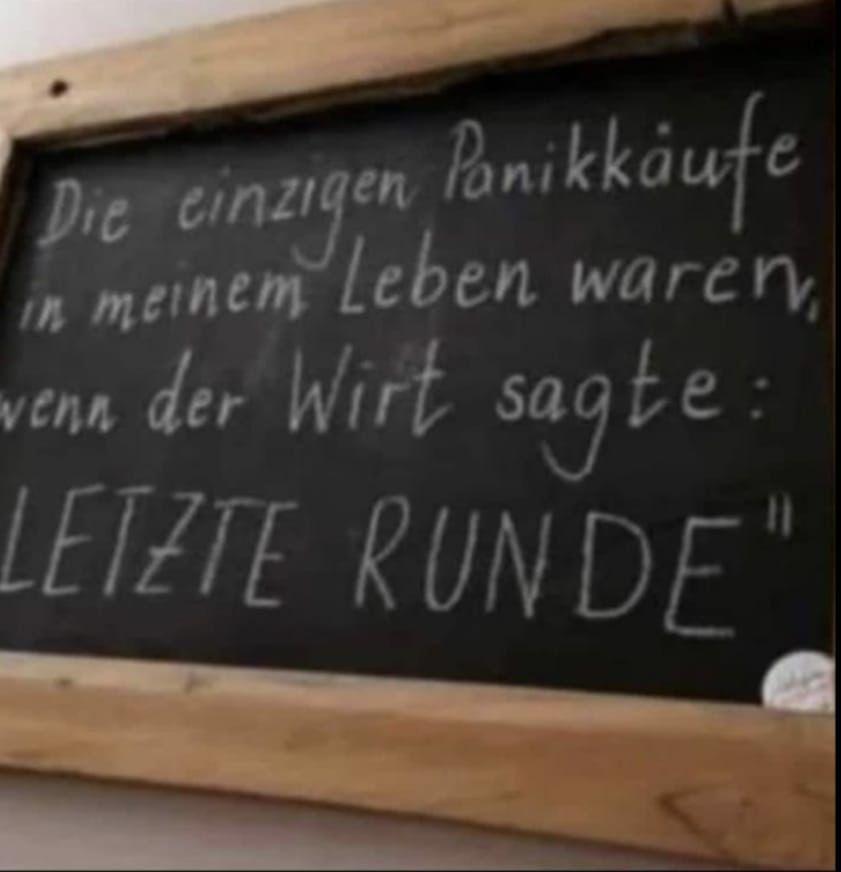 Die einzigen Panikkäufe
in meinem Leben waren,
wenn der Wirt sagte:
LETZTE RUNDE"